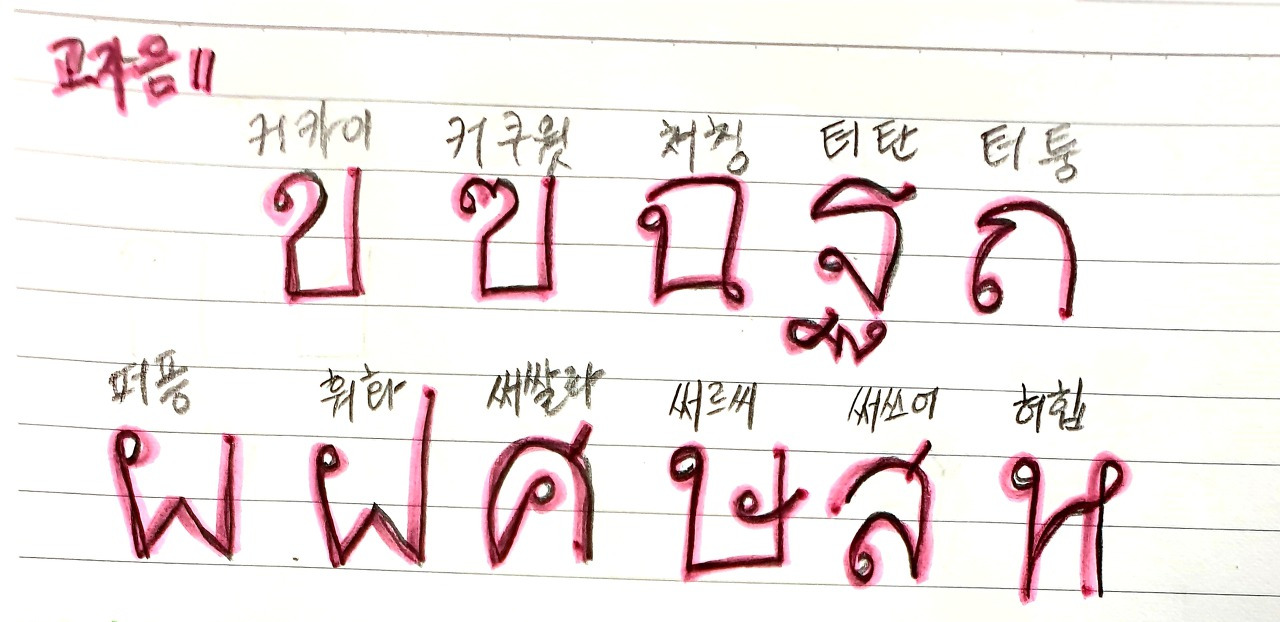 고자음 11
커카이 커쿠웟 처칭 터탄 터퉁
ข ฃ ฉ ฐ ถ
퍼풍 훠화 써쌀라 써르씨 써쓰어 허힙
ผ ฝ ศ ษ ส ห